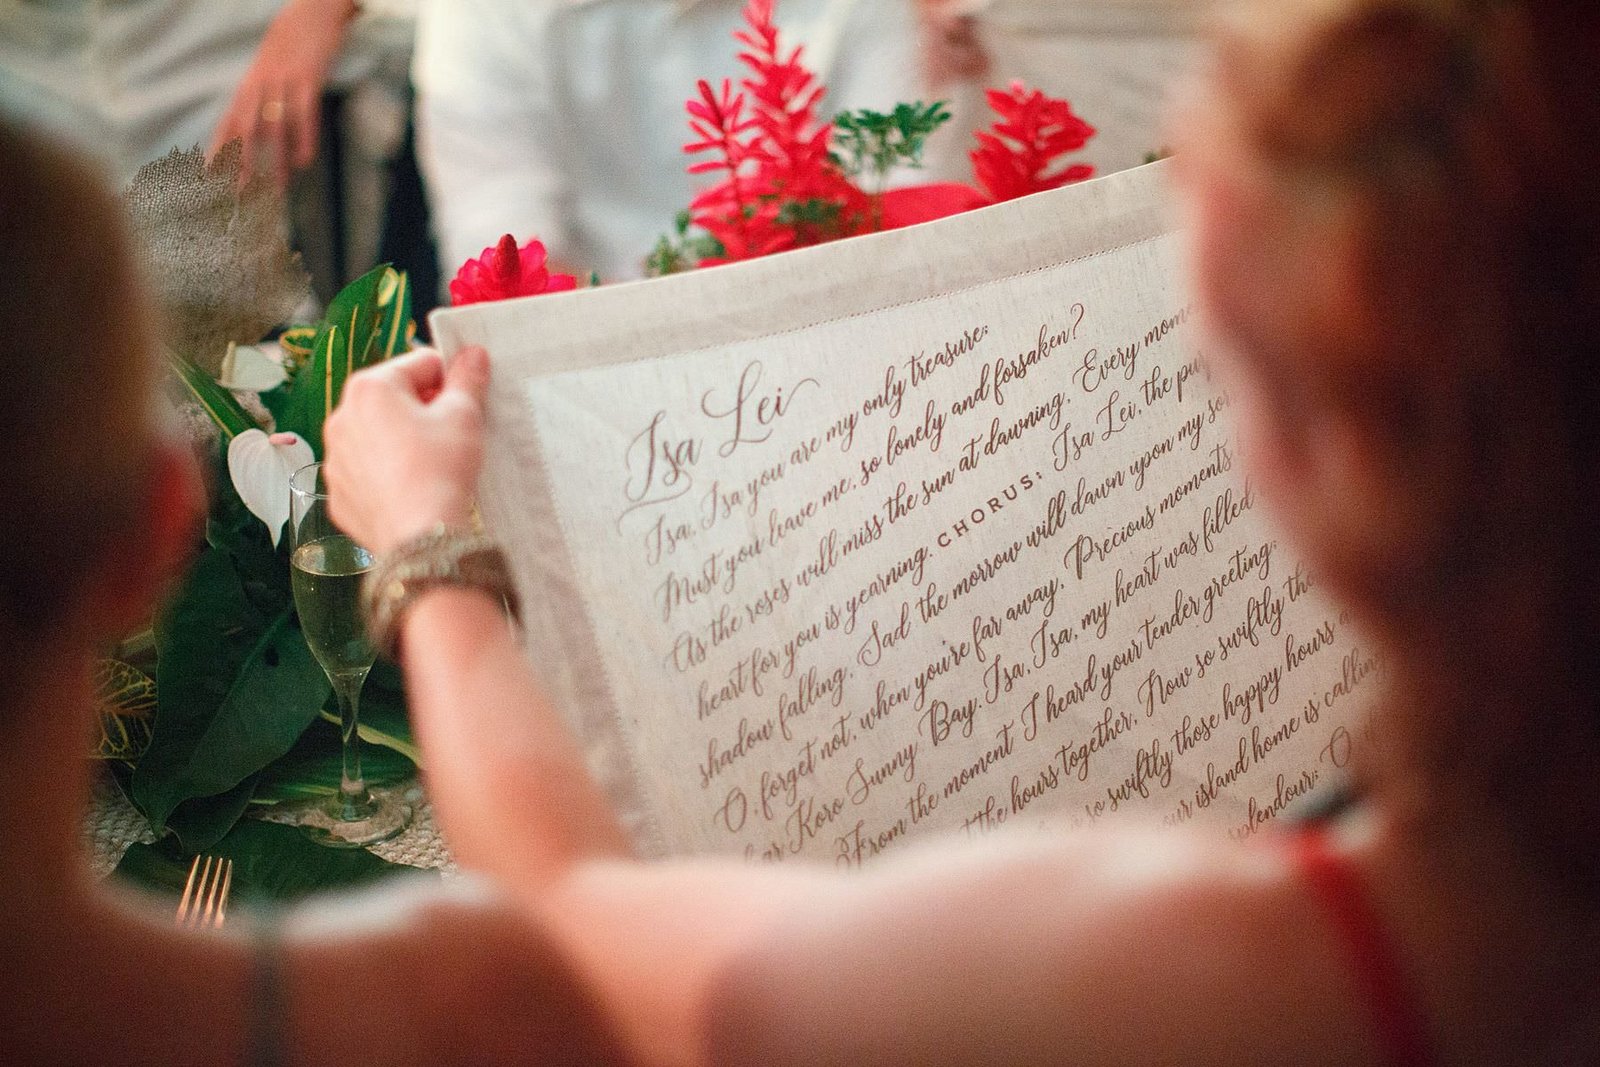 Isa Lei
Isa, Isa you are my only treasure;
Must you leave me, so lonely and forsaken?
As the roses will miss the sun at dawning, Every
heart for you is yearning. CHORUS: Isa Lei, the
shadow falling, Sad the morrow will dawn upon my
O, forget not, when you're far away, Precious moments
Koro Sunny Bay. Isa, Isa, my heart was filled
From the moment I heard your tender greeting;
the hours together, Now so swiftly
so swiftly those happy hours
island home is calling
splendour; O